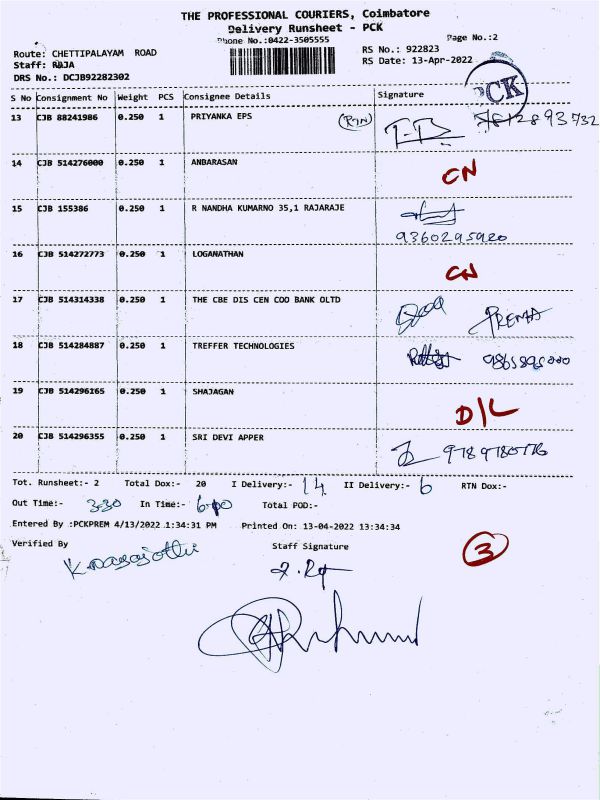 THE PROFESSIONAL COURIERS, Coimbatore
Delivery Runsheet - PCK
Phone No.:0422-3505555 Page No.:2
Route: CHETTIPALAYAM ROAD RS No.: 922823
Staff: RAJA RS Date: 13-Apr-2022
DRS No.: DCJB92282302
PCK
S No Consignment No Weight PCS Consignee Details Signature
13 CJB 88241986 0.250 1 PRIYANKA EPS RTN
14 CJB 514276000 0.250 1 ANBARASAN CN
15 CJB 155386 0.250 1 R NANDHA KUMARNO 35,1 RAJARAJE
9360295920
16 CJB 514272773 0.250 1 LOGANATHAN CN
17 CJB 514314338 0.250 1 THE CBE DIS CEN COO BANK OLTD PREMA
18 CJB 514284887 0.250 1 TREFFER TECHNOLOGIES
19 CJB 514296165 0.250 1 SHAJAGAN D/L
20 CJB 514296355 0.250 1 SRI DEVI APPER
Tot. Runsheet:- 2 Total Dox:- 20 I Delivery:- 14 II Delivery:- 6 RTN Dox:-
Out Time:- 3.30 In Time:- 6.00 Total POD:-
Entered By :PCKPREM 4/13/2022 1:34:31 PM Printed On: 13-04-2022 13:34:34
Verified By Staff Signature
3